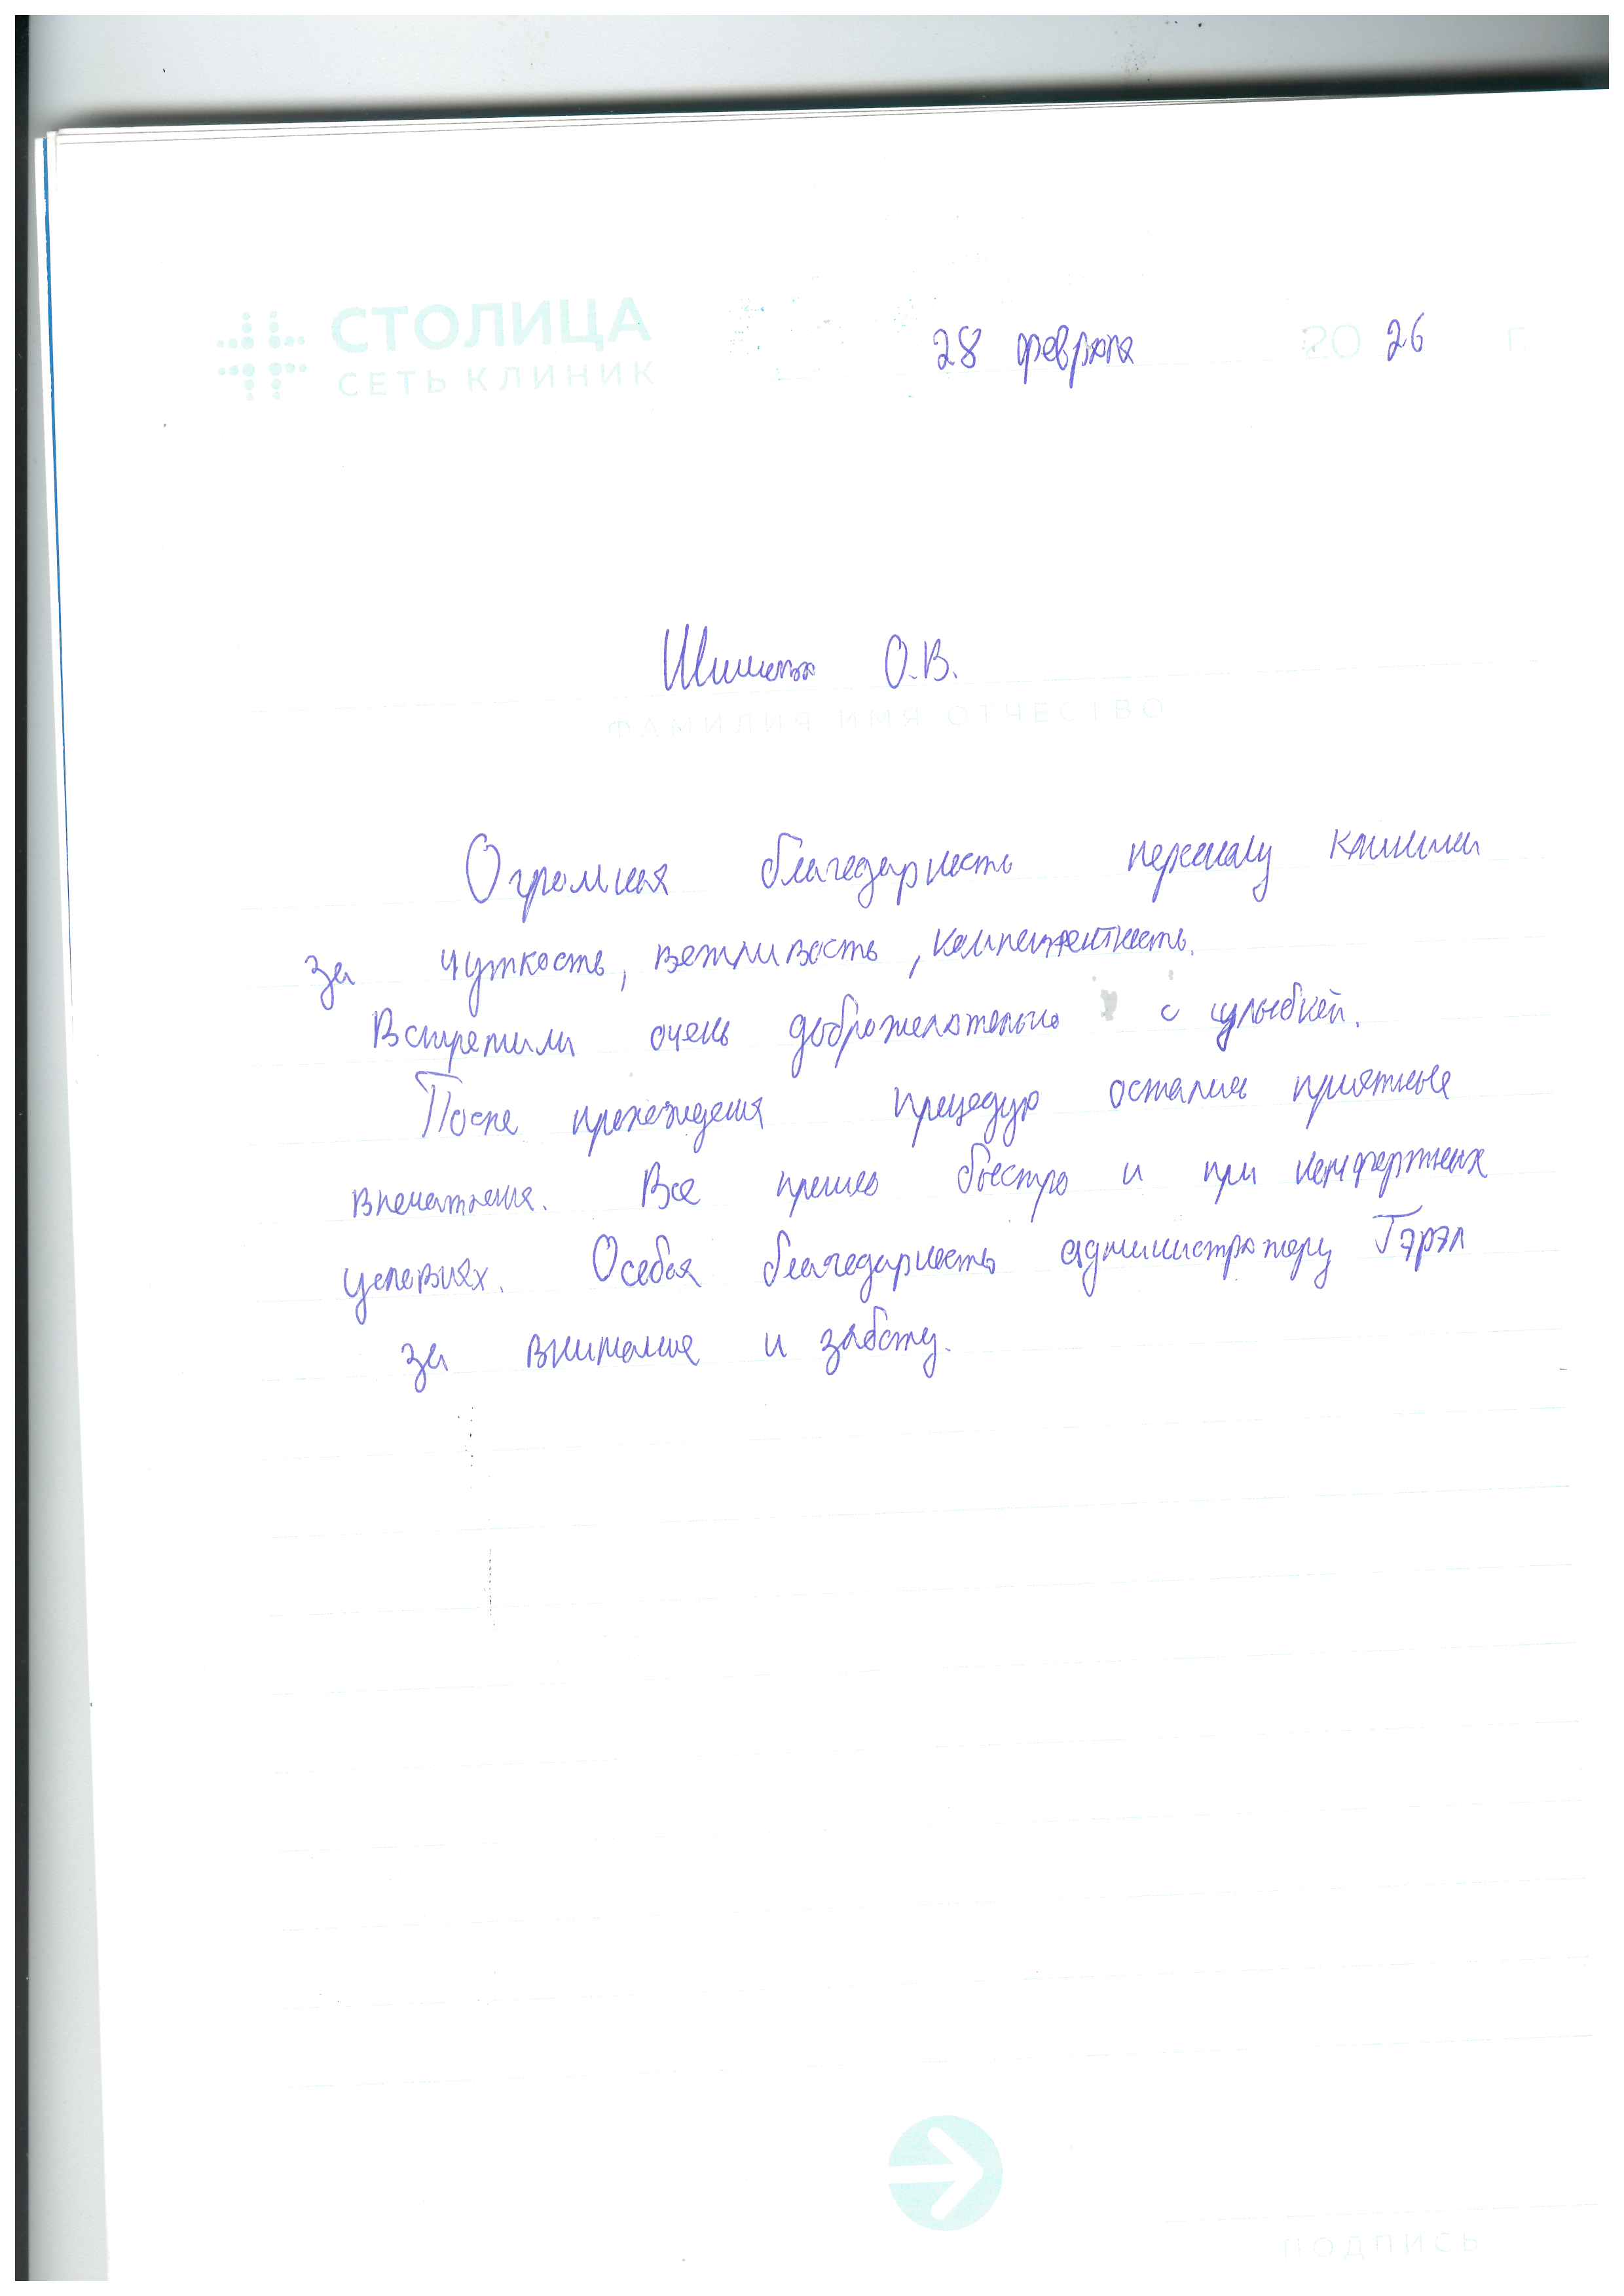 СТОЛИЦА
СЕТЬ КЛИНИК
28 февраля 2026 г.
О.В.
ФАМИЛИЯ ИМЯ ОТЧЕСТВО
Огромная благодарность персоналу клиники
за чуткость, вежливость, компетентность.
Встретили очень доброжелательно с улыбкой.
После прохождения процедур остались приятные
впечатления. Все прошло быстро и при комфортных
условиях. Особая благодарность администратору Гэрэл
за внимание и заботу.
ПОДПИСЬ